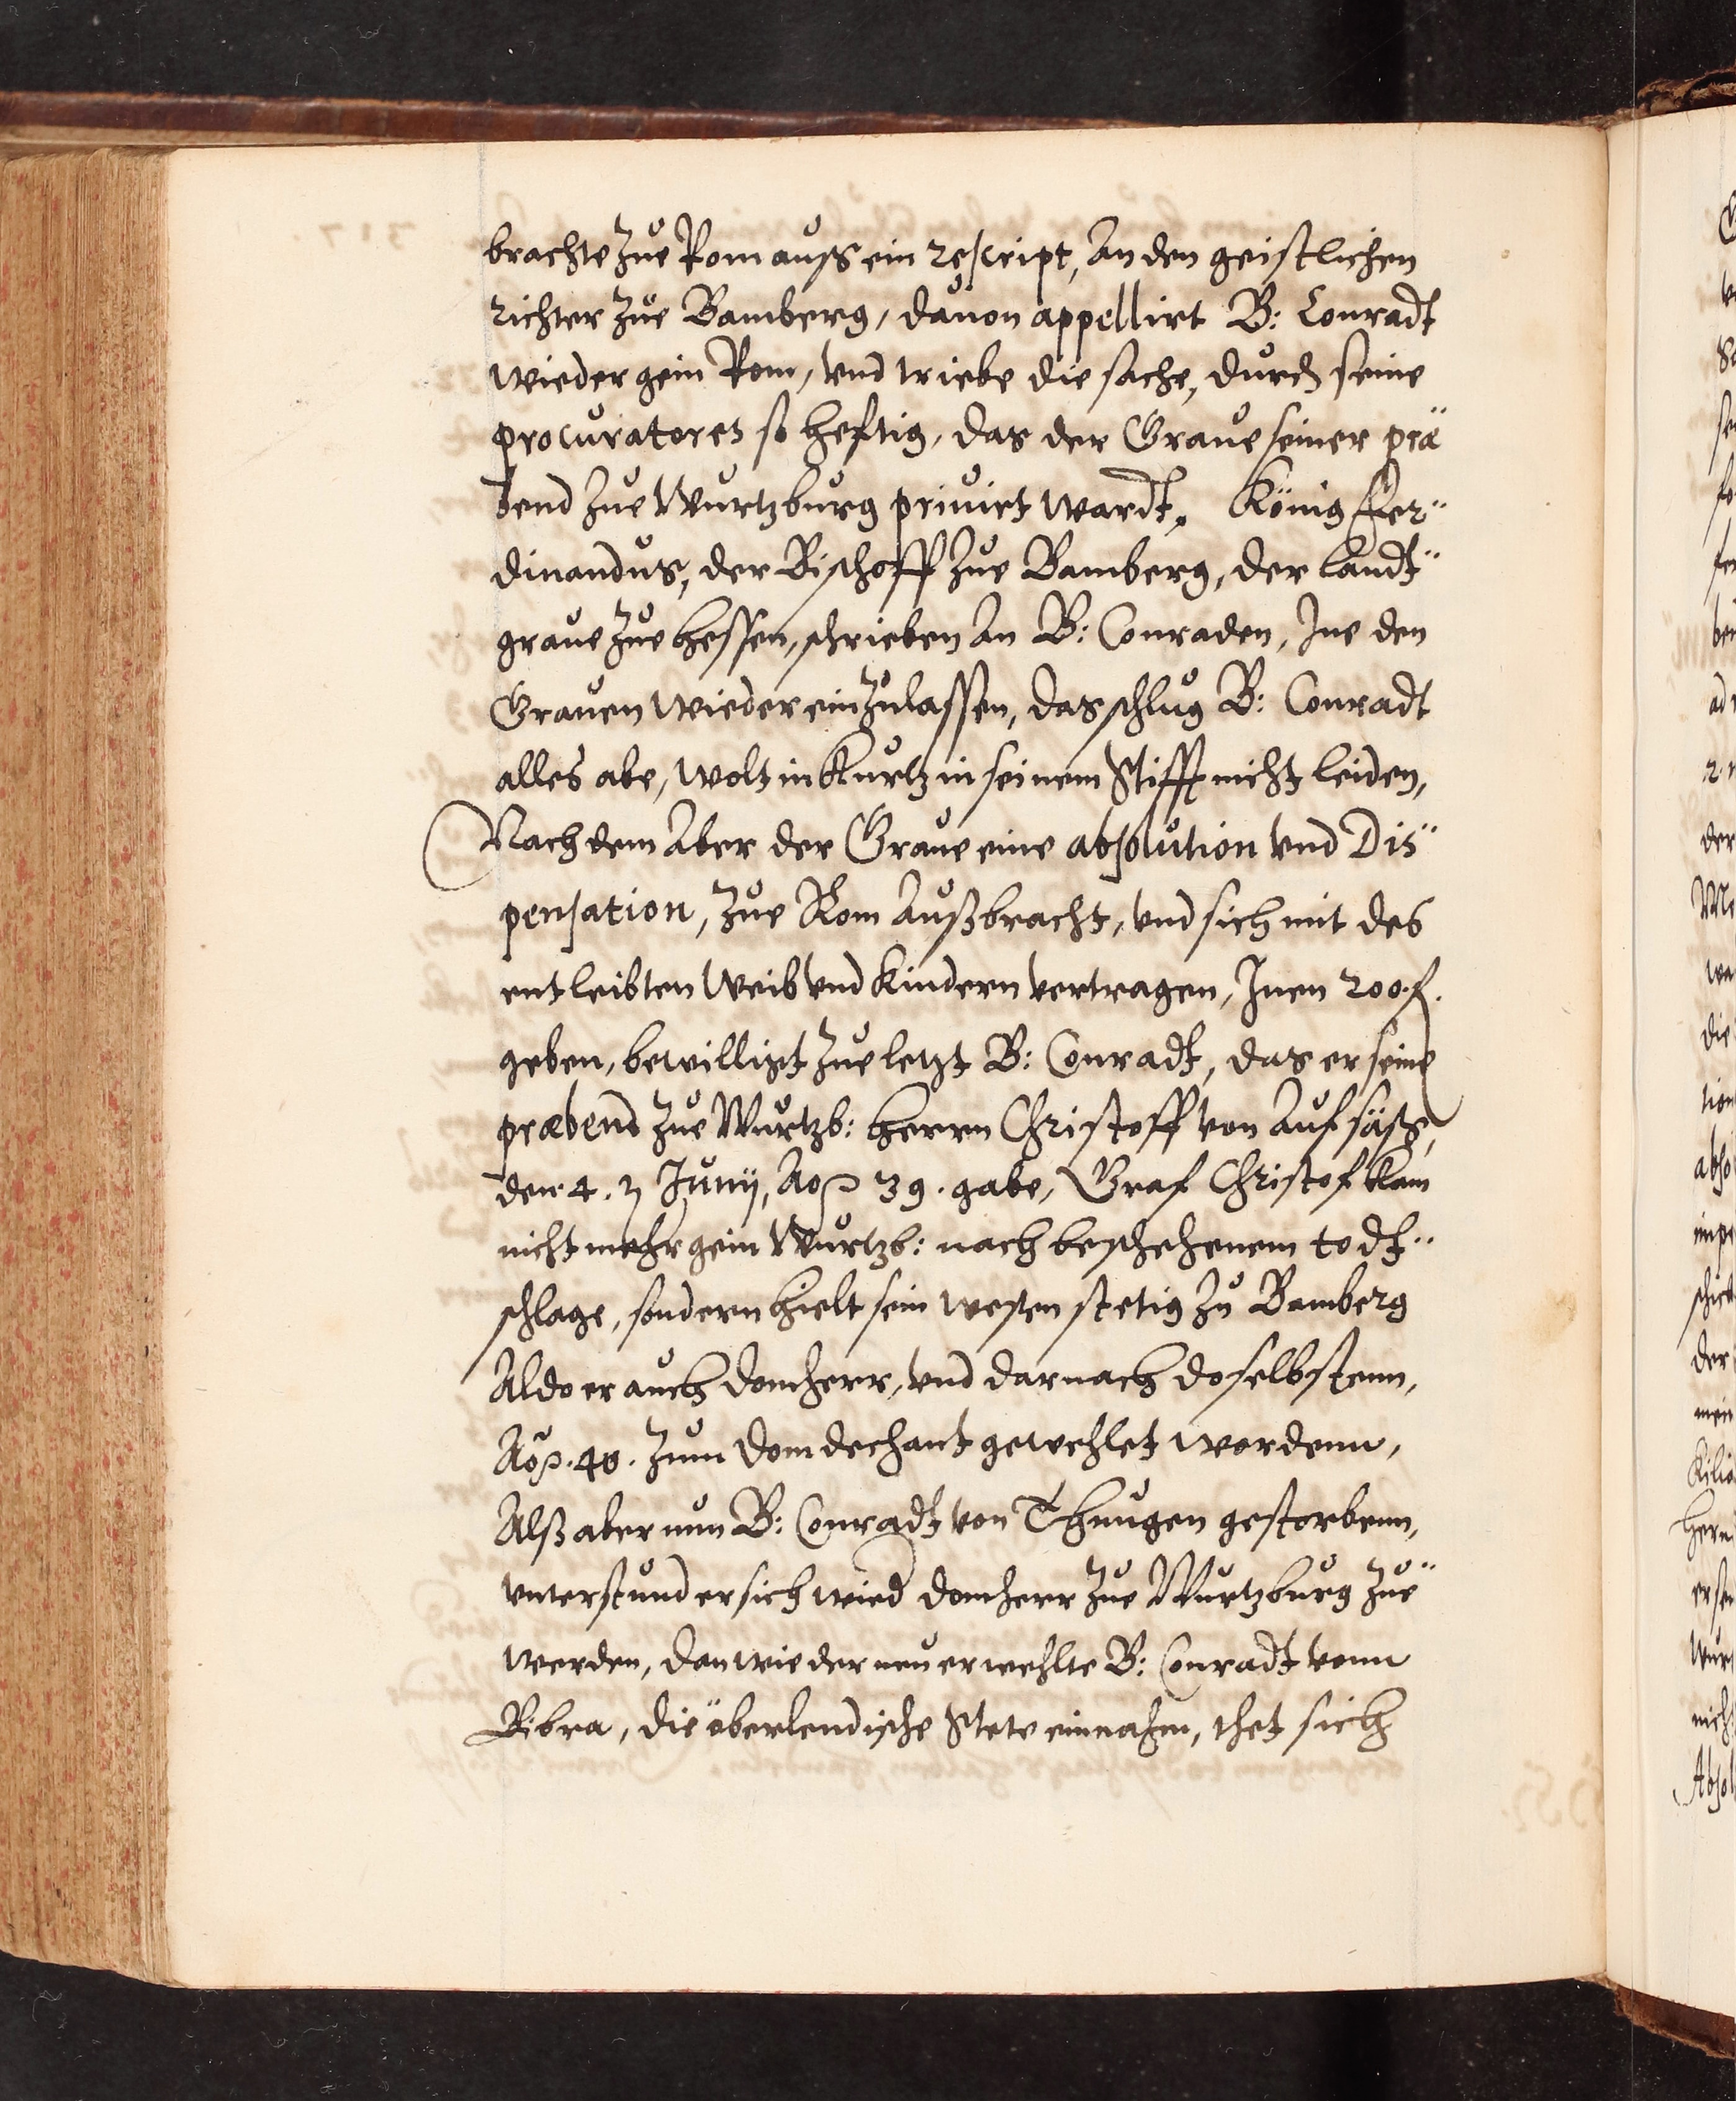 brachte zue Rom auss ein rescript, An den geistlichen
richter zue Bamberg, dauon appellirt B: Conradt
wieder gein Rom, vnd triebe die sache, durch seine
procuratores so hefftig, das der Graue seiner præ¨
bend zue Wurtzburg priuirt wardt. König Fer¨
dinandus, der Bischoff zue Bamberg, der landt¨
graue zue hessen, schrieben An B: Conraden, Ine den
Grauen wieder einzulassen, das schlug B: Conradt
alles abe, wolt in kurtz in seinem Stifft nicht leiden,
Nach dem Aber der Graue eine absolution vnd Dis¨
pensation, zue Rom Außbracht, vnd sich mit des
entleibten Weib vnd Kindern vertragen, Inen 200 f.
geben, bewilligt zue letzt B: Conradt, das er seine
præbend zue Wurtzb: herrn Christoff von Aufsäsß,
den 4. Junij, Ao 39. gabe, Graf Christof kam
nicht mehr gein Wurtzb: nach beschehenem todt¨
schlage, sondern hielt sein wesen stetig zu Bamberg
Aldo er auch domherr, vnd darnach doselbstenn,
Ao. 40. zum domdechant gewehlet wordenn,
Alß aber nun B: Conradt von Thungen gestorbenn,
vnterstund er sich wied domherr zue Wurtzburg zue¨
werden, dan wie der neu erwehlte B: Conradt vonn
Bibra, die öberlendische Stete einnahm, thet sich